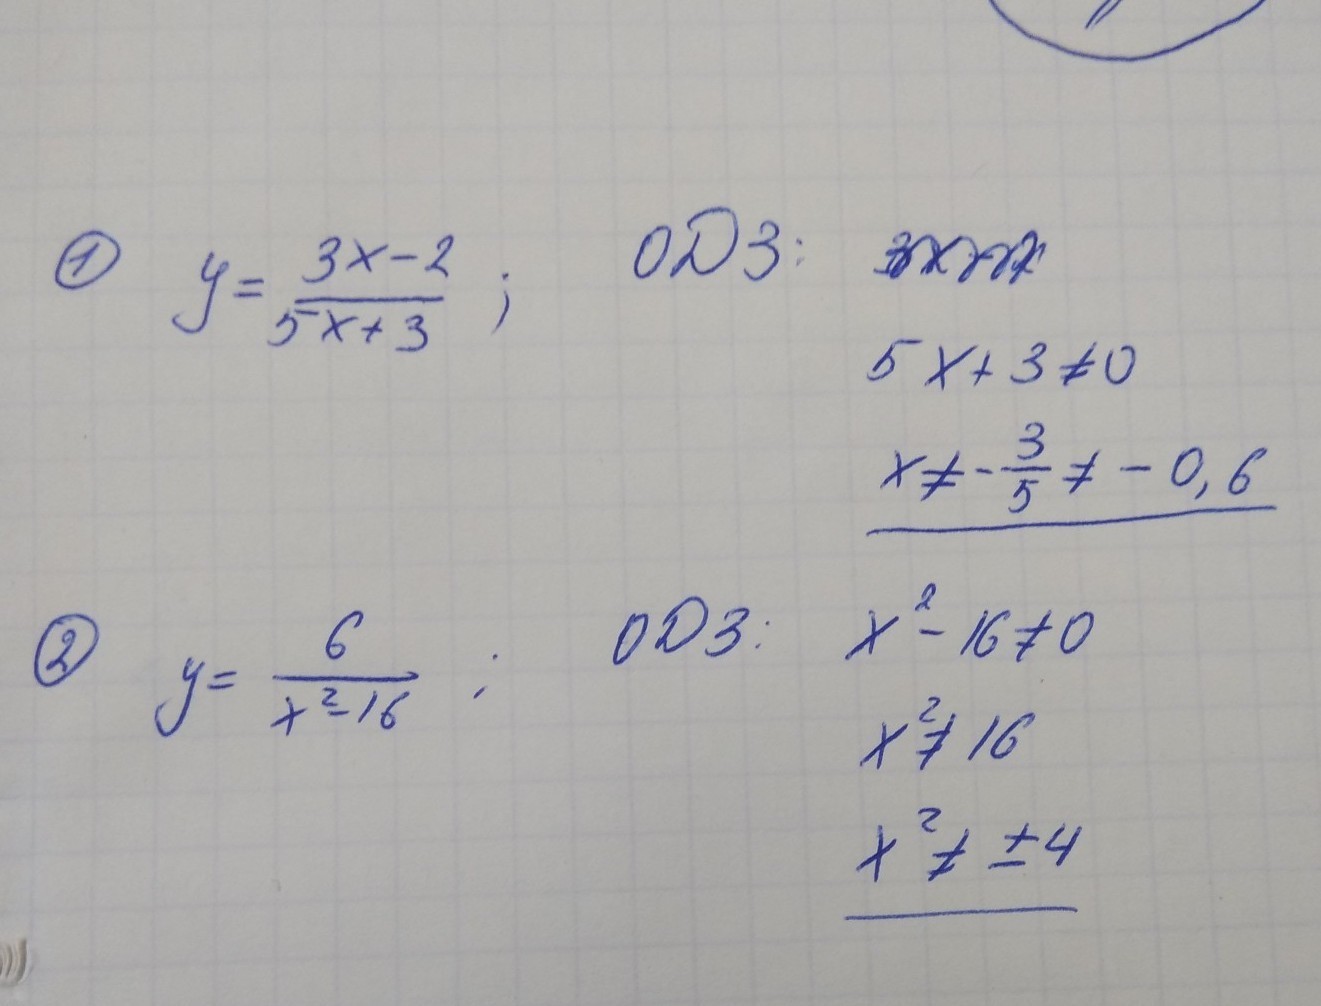 ① y = (3x-2)/(5x+3) ; ОДЗ:
5x+3≠0
x≠-3/5≠-0,6
② y = 6/(x²-16) ; ОДЗ: x²-16≠0
x²≠16
x²≠±4